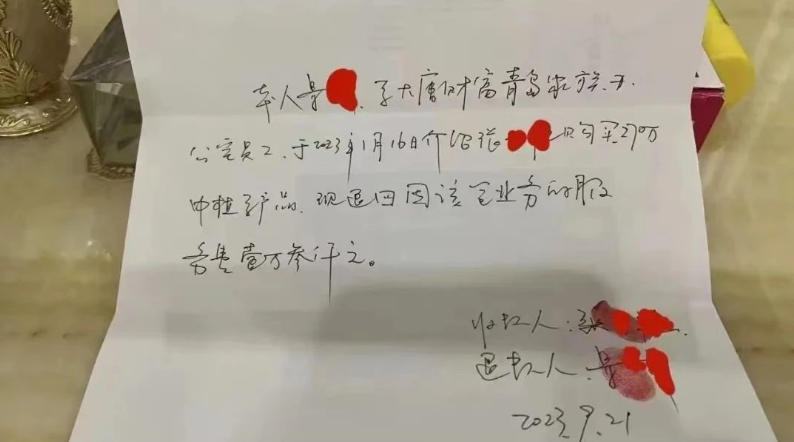 本人景 系大唐财富青岛家族办
公室员工,于2023年1月16日介绍张 购买270万
中植系产品,现退回因该笔业务的服
务费壹万叁仟元。
收款人:张
退款人:景
2023.9.21